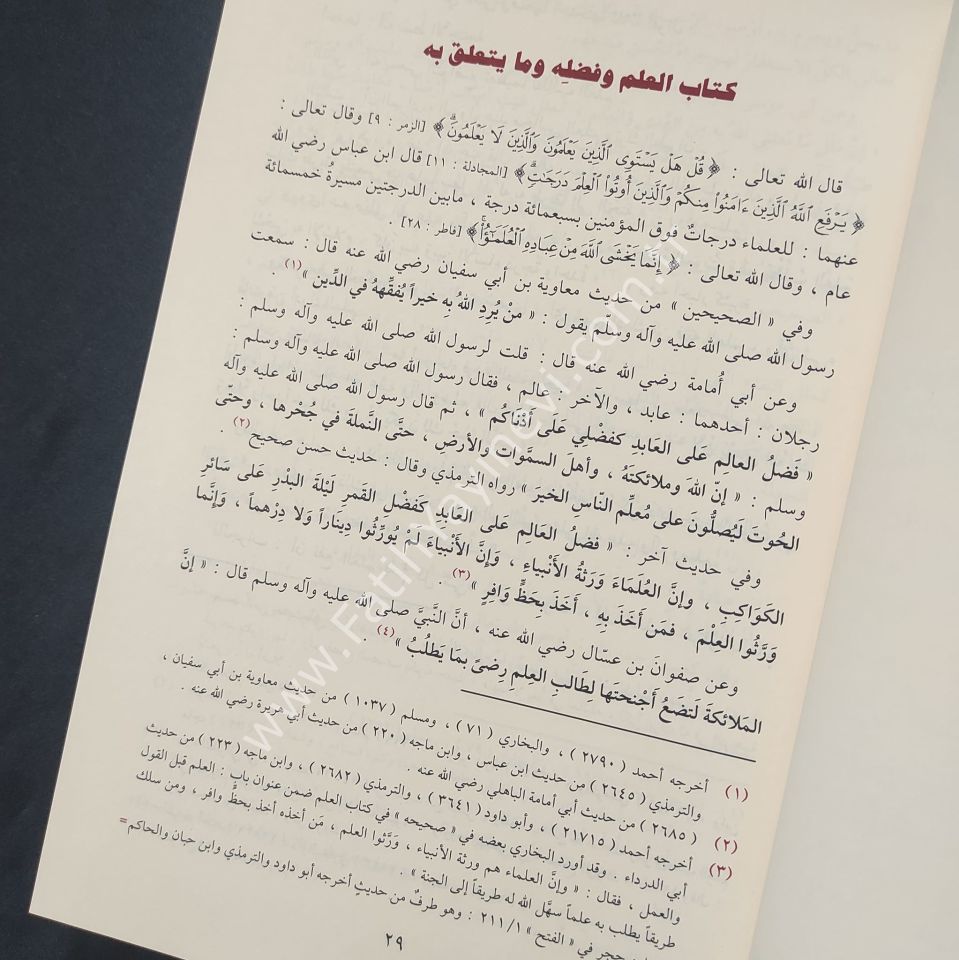 كتاب العلم وفضلِه وما يتعلق به
قال الله تعالى : ﴿ قُلْ هَلْ يَسْتَوِي الَّذِينَ يَعْلَمُونَ وَالَّذِينَ لَا يَعْلَمُونَ ﴾ [الزمر : ٩] وقال تعالى :
﴿ يَرْفَعِ اللَّهُ الَّذِينَ ءَامَنُوا مِنكُمْ وَالَّذِينَ أُوتُوا الْعِلْمَ دَرَجَاتٍ ﴾ [المجادلة : ١١] قال ابن عباس رضي الله
عنهما : للعلماء درجاتٌ فوق المؤمنين بسبعمائة درجة ، مابين الدرجتين مسيرةُ خمسمائة
عام ، وقال الله تعالى : ﴿ إِنَّمَا يَخْشَى اللَّهَ مِنْ عِبَادِهِ الْعُلَمَٰٓؤُا ﴾ [فاطر : ٢٨] .
وفي « الصحيحين » من حديث معاوية بن أبي سفيان رضي الله عنه قال : سمعت
رسول الله صلى الله عليه وآله وسلم يقول : « منْ يُرِدِ اللهُ بِه خيراً يُفقِّههُ في الدِّين »(١) .
وعن أبي أُمامة رضي الله عنه قال : قلت لرسول الله صلى الله عليه وآله وسلم :
رجلان : أحدهما : عابد ، والآخر : عالم ، فقال رسول الله صلى الله عليه وآله وسلم :
« فَضلُ العالِم عَلى العَابدِ كفضْلِي عَلى أَدْنَاكُم » ، ثم قال رسول الله صلى الله عليه وآله
وسلم : « إنّ اللهَ وملائكتَهُ ، وأهلَ السمَّوات والأرضِ ، حتَّى النَّملةَ في جُحْرها ، وحتّى
الحُوتَ لَيُصلُّونَ على مُعلِّم النّاس الخيرَ » رواه الترمذي وقال : حديث حسن صحيح(٢) .
وفي حديث آخر : « فضلُ العَالِم عَلى العَابدِ كَفضْلِ القَمرِ لَيْلةَ البَدْرِ عَلى سَائرِ
الكَوَاكِبِ ، وإنَّ العُلَمَاءَ وَرَثةُ الأَنْبياءِ ، وَإنَّ الأَنْبياءَ لَمْ يُورِّثُوا دِينَاراً وَلا دِرْهماً ، وَإنَّما
وَرَّثُوا العِلْمَ ، فمَن أَخَذَ بِهِ ، أَخَذَ بِحَظٍّ وَافِرٍ »(٣) .
وعن صفوانَ بن عسّال رضي الله عنه ، أنَّ النَّبيَّ صلى الله عليه وآله وسلم قال : « إنَّ
المَلائكةَ لَتضَعُ أَجْنحتَها لِطَالبِ العِلمِ رِضىً بمَا يَطلُبُ »(٤) .
(١) أخرجه أحمد ( ٢٧٩٠ ) ، والبخاري ( ٧١ ) ، ومسلم ( ١٠٣٧ ) من حديث معاوية بن أبي سفيان ،
والترمذي ( ٢٦٤٥ ) من حديث ابن عباس ، وابن ماجه ( ٢٢٠ ) من حديث أبي هريرة رضي الله عنه .
(٢) ( ٢٦٨٥ ) من حديث أبي أمامة الباهلي رضي الله عنه .
(٣) أخرجه أحمد ( ٢١٧١٥ ) ، وأبو داود ( ٣٦٤١ ) ، والترمذي ( ٢٦٨٢ ) ، وابن ماجه ( ٢٢٣ ) من حديث
أبي الدرداء . وقد أورد البخاري بعضه في « صحيحه » في كتاب العلم ضمن عنوان باب : العلم قبل القول
والعمل ، فقال : « وإنَّ العلماء هم ورثة الأنبياء ، وَرَّثوا العلم ، مَن أخذه أخذ بحظٍّ وافر ، ومن سلك
طريقاً يطلب به علماً سهَّل الله له طريقاً إلى الجنة » .
ابن حجر في « الفتح » ٢١١/١ : وهو طرفٌ من حديثٍ أخرجه أبو داود والترمذي وابن حبان والحاكم =
٢٩
www.FatihYayinevi.com.tr